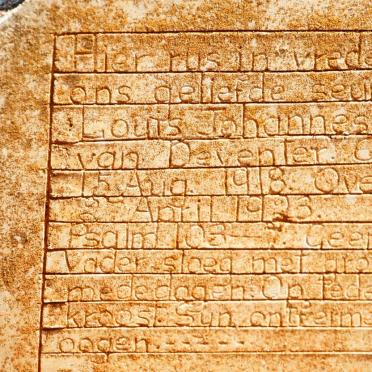 Hier rus in vrede
ons geliefde seun
Louis Johannes
van Deventer G
15 Aug. 1918. Ove
8. April 1923.
Psalm 103- Geen
Vader sloeg met gro
mededogen Op teder
kroost Syn ontferm
oogen. - - - -